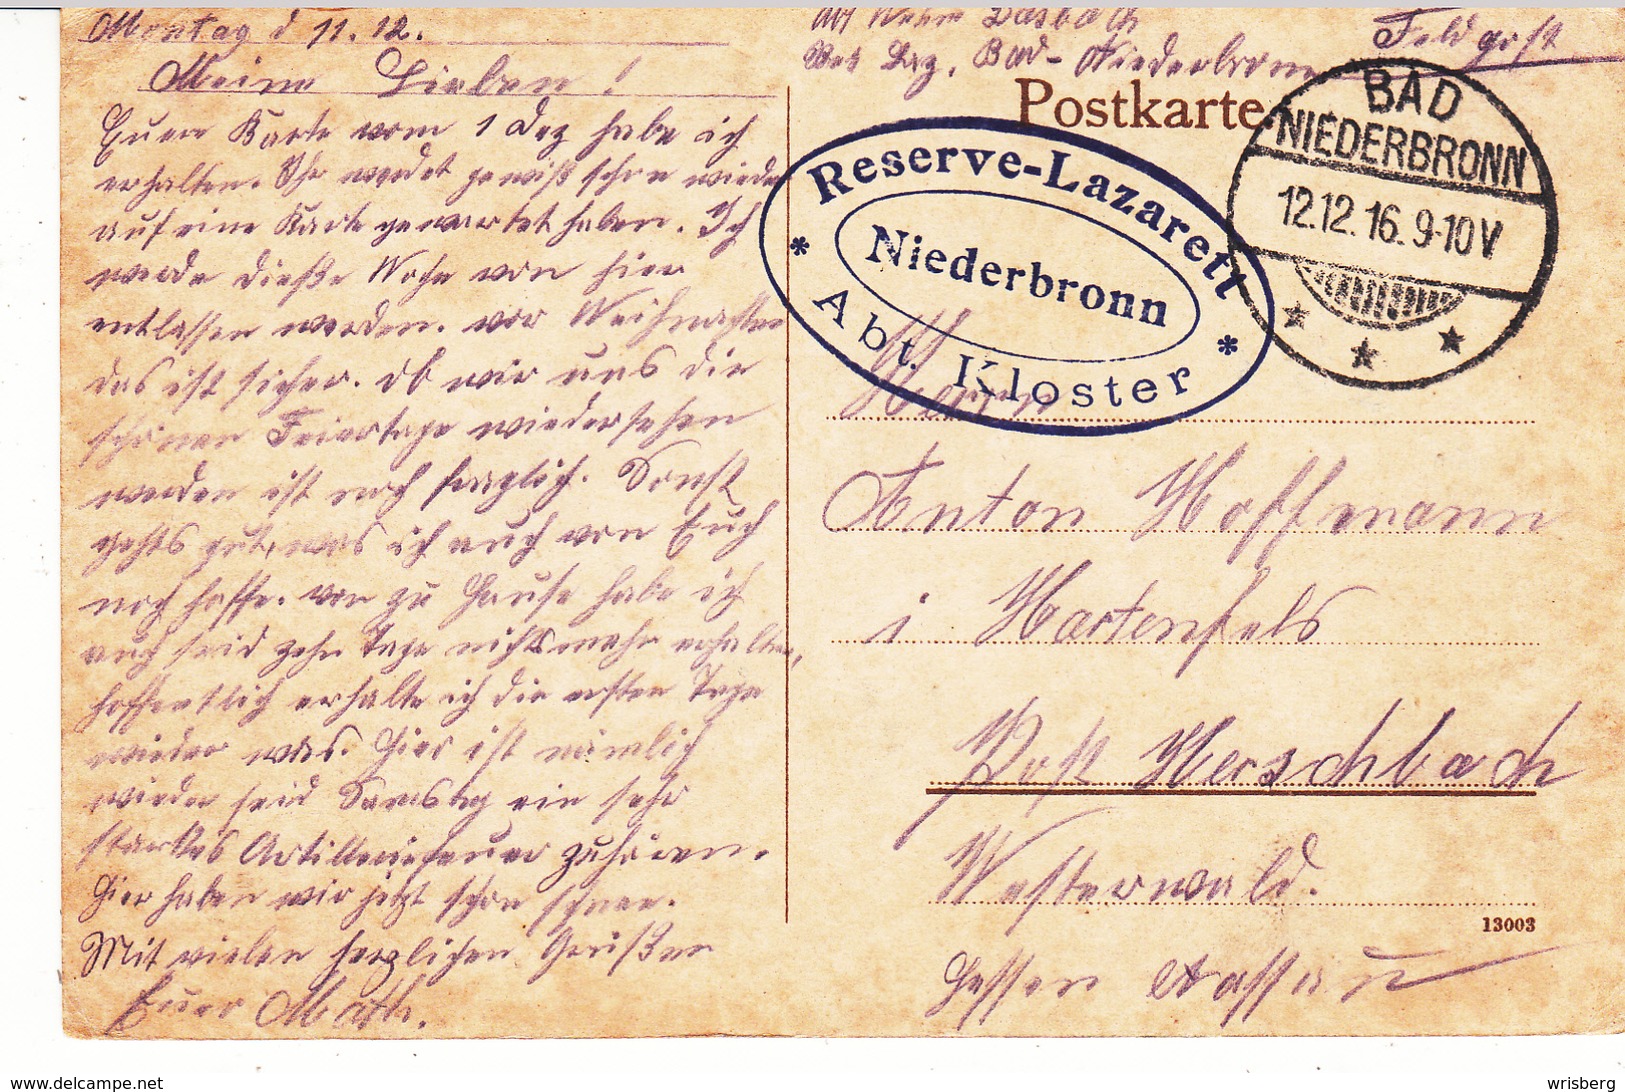 Montag d 11.12.
Meine Lieben!
Euere Karte vom 1 Dez habe ich
erhalten. Ihr werdet gewiß schon wieder
auf eine Karte gewartet haben. Ich
werde dieße Woche von hier
entlassen werden. vor Weihnachten
das ist sicher. Ob wir uns die
schönen Feiertage wiedersehen
werden ist noch fraglich. Sonst
gehts gut, was ich auch von Euch
noch hoffe. von zu Hause habe ich
auch seid zehn Tage nichts mehr erhalten,
hoffentlich erhalte ich die ersten Tage
wieder was. Hier ist nämlich
wieder seid Samstag ein sehr
starkes Artilleriefeuer zuhören.
Hier haben wir jetzt schon schnee.
Mit vielen herzlichen Grüßen
Euer Math.
Dasbach
Res Laz. Bad-Niederbronn
Feldpost
Postkarte
Reserve-Lazarett
Niederbronn
Abt. Kloster
BAD
NIEDERBRONN
12.12.16.9-10V
Herrn
Anton Hoffmann
i Hartenfels
Post Herschbach
Westerwald.
13003
Hessen Nassau
www.delcampe.net
wrisberg